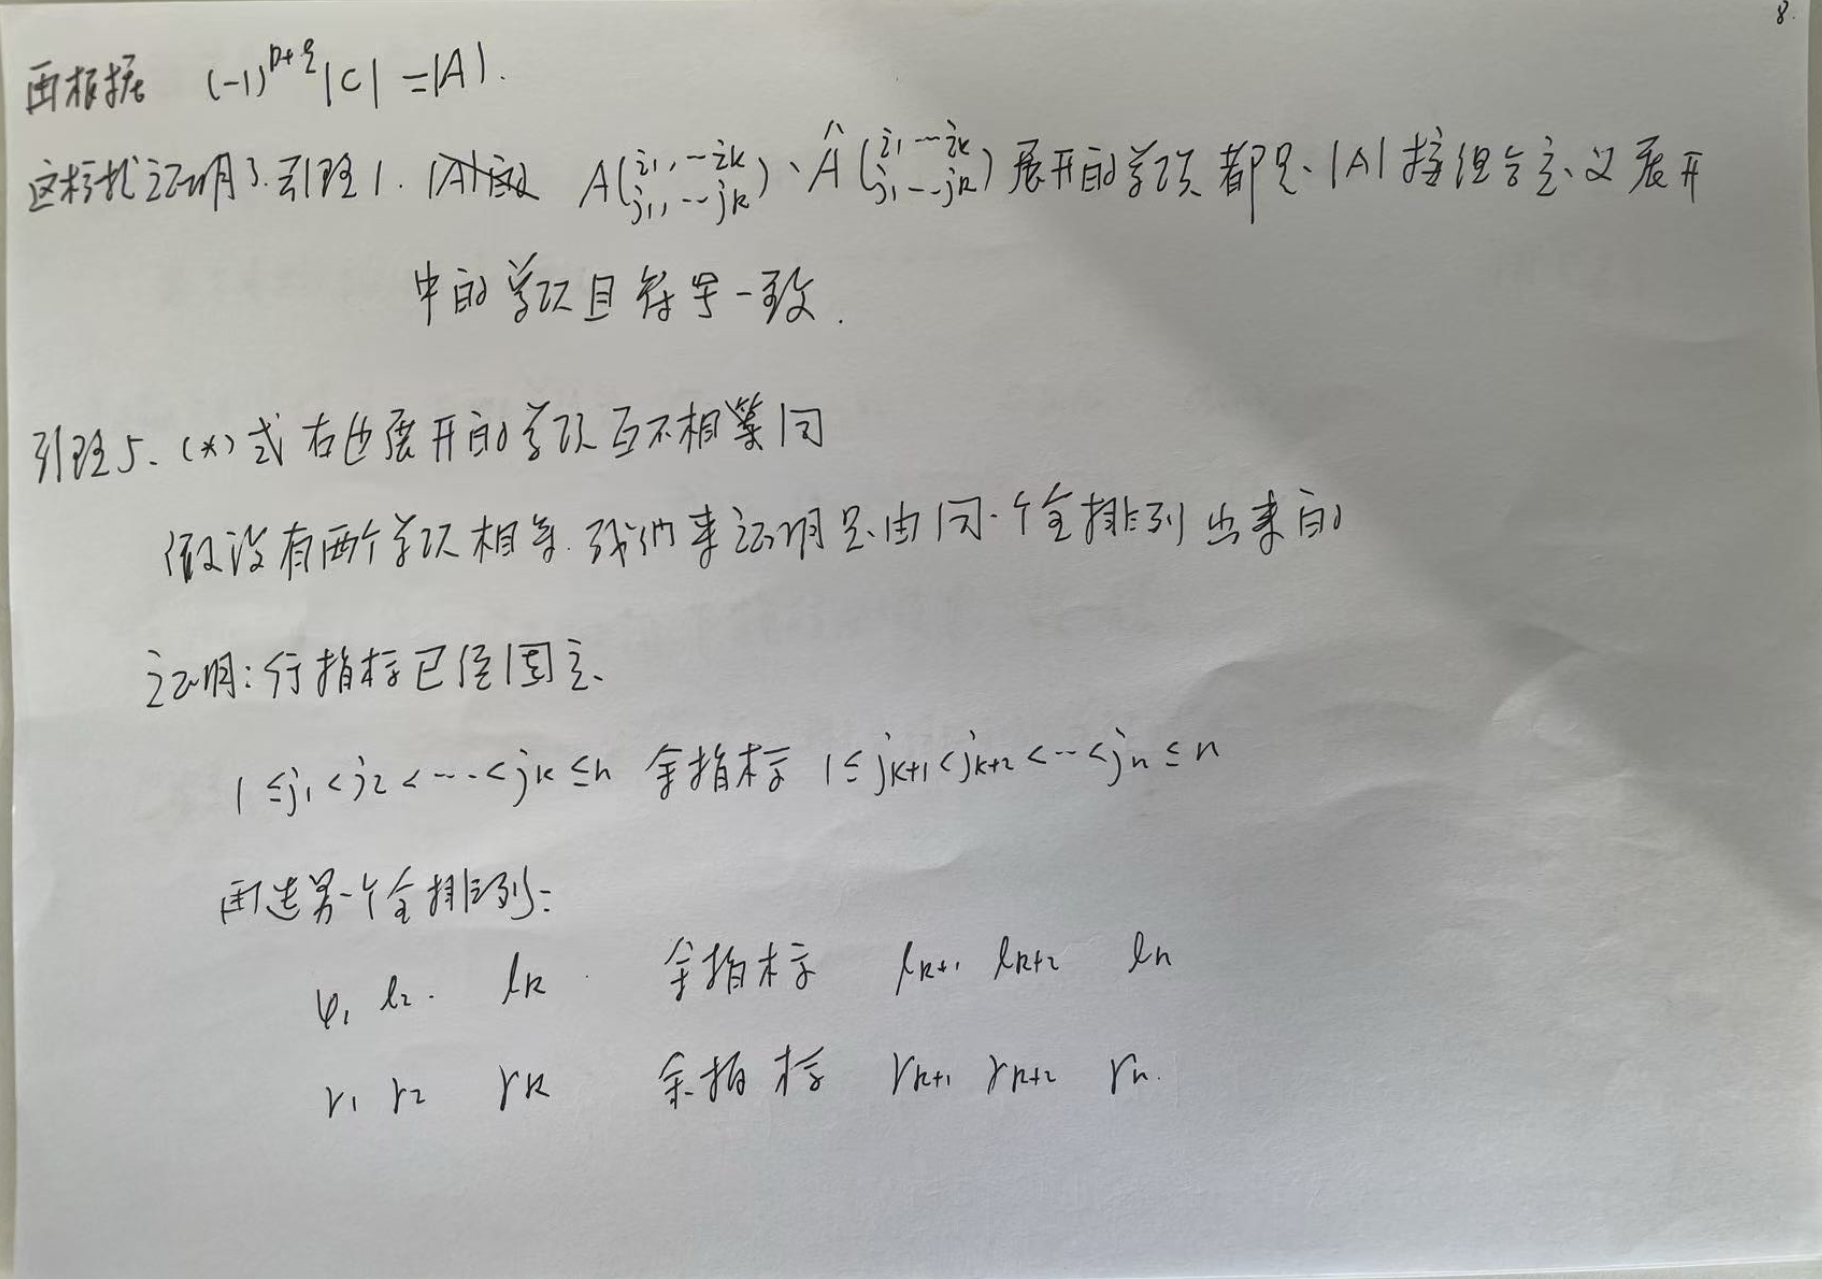 8.
再根据 (-1)^{p+q}|C| = |A|.
这样就证明了引理1. |A|的 A(i₁,…iₖ / j₁,…jₖ)、Â(i₁…iₖ / j₁…jₖ)展开的单项都是|A|按组合定义展开
中的单项且符号一致.
引理5. (*)式右边展开的单项互不相等同
假设有两个单项相等.我们来证明是由同一个全排列出来的
证明:行指标已经固定
1≤j₁<j₂<…<jₖ≤n 余指标 1≤jₖ₊₁<jₖ₊₂<…<jₙ≤n
再造另一个全排列:
φ₁ l₂. lₖ 余指标 lₖ₊₁ lₖ₊₂ lₙ
r₁ r₂ rₖ 余指标 rₖ₊₁ rₖ₊₂ rₙ.